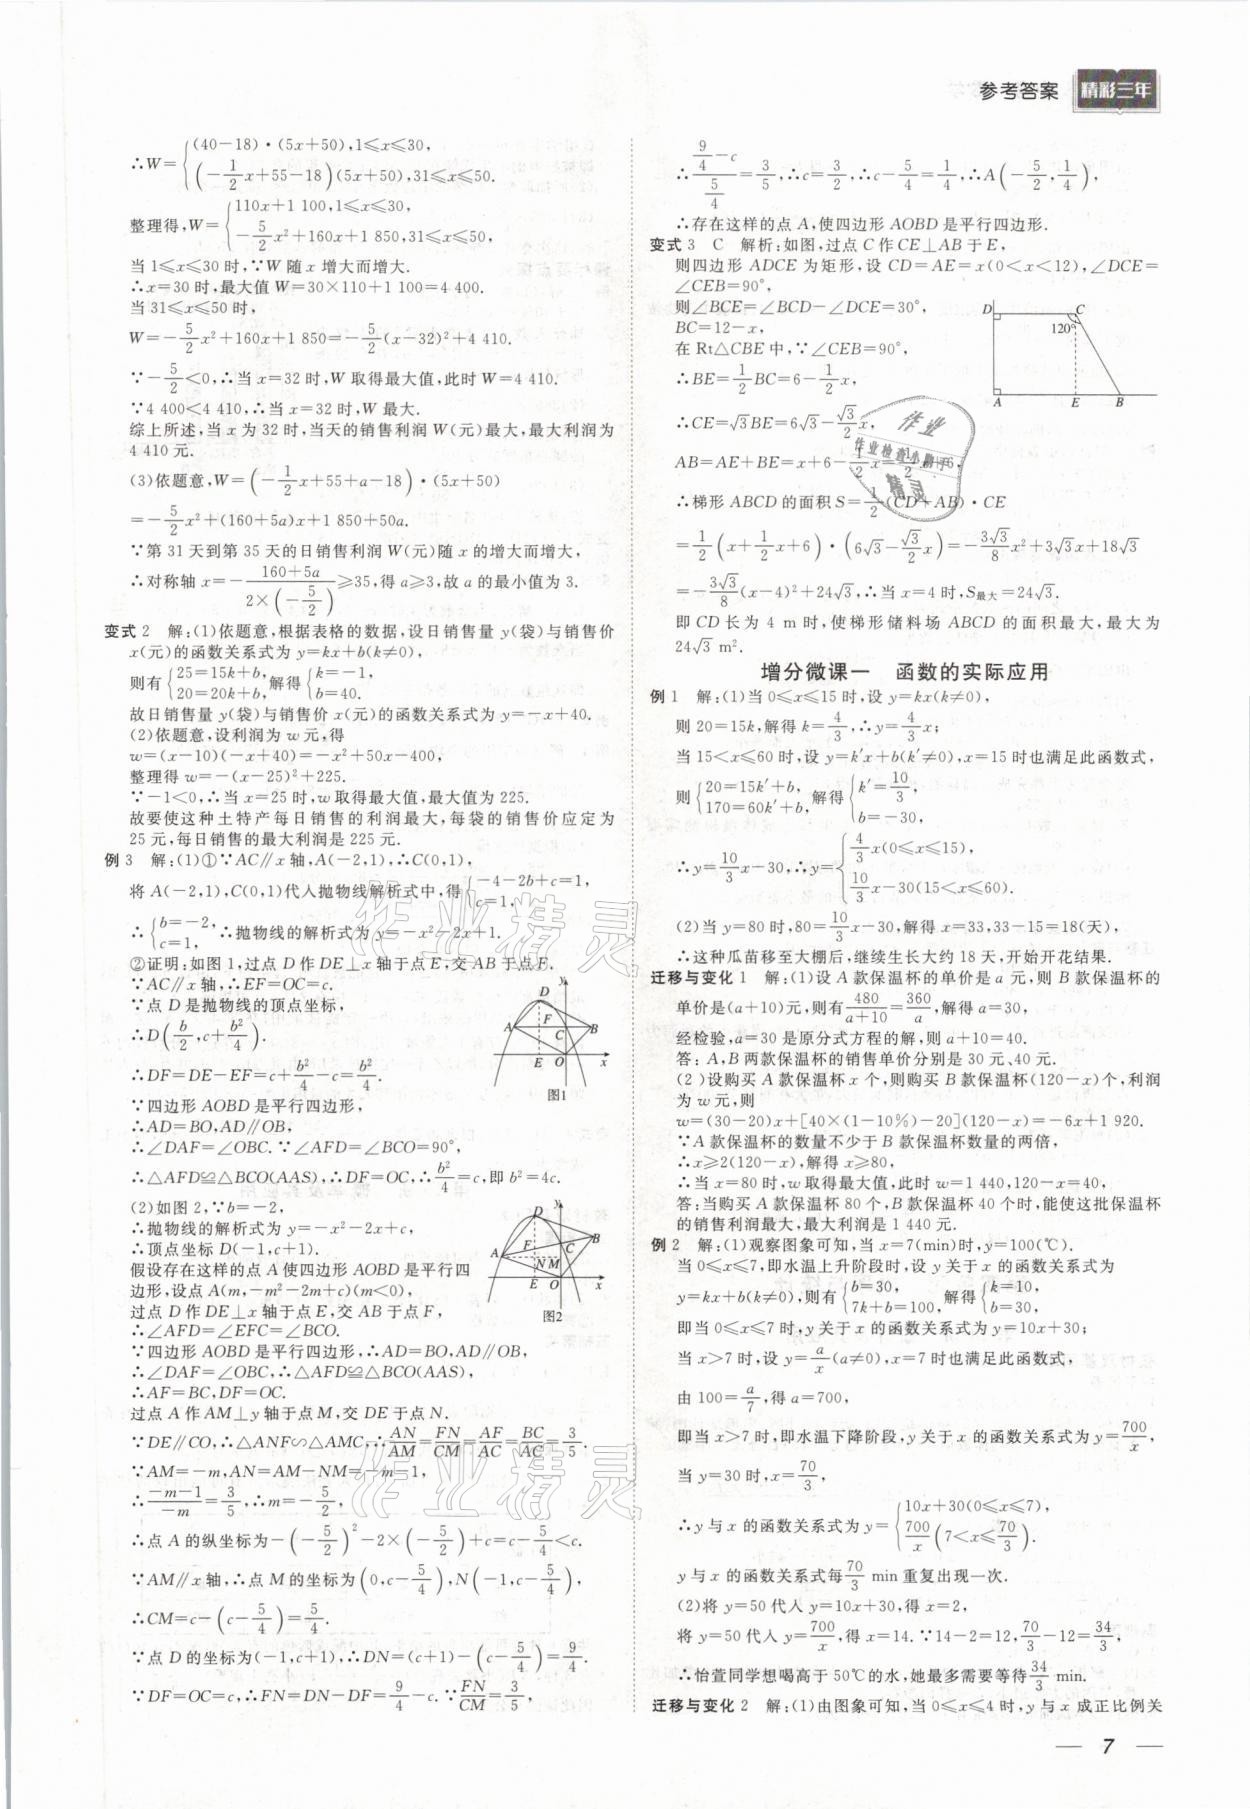 参考答案 精彩三年
∴W={(40-18)·(5x+50),1≤x≤30,
(-1/2x+55-18)(5x+50),31≤x≤50.
整理得,W={110x+1 100,1≤x≤30,
-5/2x²+160x+1 850,31≤x≤50,
当 1≤x≤30 时,∵W 随 x 增大而增大.
∴x=30 时,最大值 W=30×110+1 100=4 400.
当 31≤x≤50 时,
W=-5/2x²+160x+1 850=-5/2(x-32)²+4 410.
∵-5/2<0,∴当 x=32 时,W 取得最大值,此时 W=4 410.
∵4 400<4 410,∴当 x=32 时,W 最大.
综上所述,当 x 为 32 时,当天的销售利润 W(元)最大,最大利润为
4 410 元.
(3)依题意,W=(-1/2x+55+a-18)·(5x+50)
=-5/2x²+(160+5a)x+1 850+50a.
∵第 31 天到第 35 天的日销售利润 W(元)随 x 的增大而增大,
∴对称轴 x=-(160+5a)/(2×(-5/2))≥35,得 a≥3,故 a 的最小值为 3.
变式 2 解:(1)依题意,根据表格的数据,设日销售量 y(袋)与销售价
x(元)的函数关系式为 y=kx+b(k≠0),
则有{25=15k+b, 20=20k+b,解得{k=-1, b=40.
故日销售量 y(袋)与销售价 x(元)的函数关系式为 y=-x+40.
(2)依题意,设利润为 w 元,得
w=(x-10)(-x+40)=-x²+50x-400,
整理得 w=-(x-25)²+225.
∵-1<0,∴当 x=25 时,w 取得最大值,最大值为 225.
故要使这种土特产每日销售的利润最大,每袋的销售价应定为
25 元,每日销售的最大利润是 225 元.
例 3 解:(1)①∵AC∥x 轴,A(-2,1),∴C(0,1),
将 A(-2,1),C(0,1)代入抛物线解析式中,得{-4-2b+c=1, c=1,
∴{b=-2, c=1, ∴抛物线的解析式为 y=-x²-2x+1.
②证明:如图 1,过点 D 作 DE⊥x 轴于点 E,交 AB 于点 F.
∵AC∥x 轴,∴EF=OC=c.
∵点 D 是抛物线的顶点坐标,
∴D(b/2,c+b²/4).
∴DF=DE-EF=c+b²/4-c=b²/4.
∵四边形 AOBD 是平行四边形,
∴AD=BO,AD∥OB,
∴∠DAF=∠OBC.∵∠AFD=∠BCO=90°,
∴△AFD≌△BCO(AAS),∴DF=OC,∴b²/4=c,即 b²=4c.
A B C D E F O x y
图1
(2)如图 2,∵b=-2,
∴抛物线的解析式为 y=-x²-2x+c,
∴顶点坐标 D(-1,c+1).
假设存在这样的点 A 使四边形 AOBD 是平行四
边形,设点 A(m,-m²-2m+c)(m<0),
过点 D 作 DE⊥x 轴于点 E,交 AB 于点 F,
∴∠AFD=∠EFC=∠BCO.
∵四边形 AOBD 是平行四边形,∴AD=BO,AD∥OB,
∴∠DAF=∠OBC,∴△AFD≌△BCO(AAS),
∴AF=BC,DF=OC.
A B C D E F N M O x y
图2
过点 A 作 AM⊥y 轴于点 M,交 DE 于点 N.
∵DE∥CO,∴△ANF∽△AMC,∴AN/AM=FN/CM=AF/AC=BC/AC=3/5.
∵AM=-m,AN=AM-NM=-m-1,
∴(-m-1)/(-m)=3/5,∴m=-5/2,
∴点 A 的纵坐标为-(-5/2)²-2×(-5/2)+c=c-5/4<c.
∵AM∥x 轴,∴点 M 的坐标为(0,c-5/4),N(-1,c-5/4),
∴CM=c-(c-5/4)=5/4.
∵点 D 的坐标为(-1,c+1),∴DN=(c+1)-(c-5/4)=9/4.
∵DF=OC=c,∴FN=DN-DF=9/4-c.∵FN/CM=3/5,
∴(9/4-c)/(5/4)=3/5,∴c=3/2,∴c-5/4=1/4,∴A(-5/2,1/4),
∴存在这样的点 A,使四边形 AOBD 是平行四边形.
变式 3 C 解析:如图,过点 C 作 CE⊥AB 于 E,
则四边形 ADCE 为矩形,设 CD=AE=x(0<x<12),∠DCE=
∠CEB=90°,
则∠BCE=∠BCD-∠DCE=30°,
BC=12-x,
在 Rt△CBE 中,∵∠CEB=90°,
∴BE=1/2BC=6-1/2x,
∴CE=√3BE=6√3-√3/2x,
AB=AE+BE=x+6-1/2x=1/2x+6,
D C 120° A E B
∴梯形 ABCD 的面积 S=1/2(CD+AB)·CE
=1/2(x+1/2x+6)·(6√3-√3/2x)=-3√3/8x²+3√3x+18√3
=-3√3/8(x-4)²+24√3,∴当 x=4 时,S最大=24√3.
即 CD 长为 4 m 时,使梯形储料场 ABCD 的面积最大,最大为
24√3 m².
增分微课一 函数的实际应用
例 1 解:(1)当 0≤x≤15 时,设 y=kx(k≠0),
则 20=15k,解得 k=4/3,∴y=4/3x;
当 15<x≤60 时,设 y=k′x+b(k′≠0),x=15 时也满足此函数式,
则{20=15k′+b, 170=60k′+b,解得{k′=10/3, b=-30,
∴y=10/3x-30,∴y={4/3x(0≤x≤15),
10/3x-30(15<x≤60).
(2)当 y=80 时,80=10/3x-30,解得 x=33,33-15=18(天),
∴这种瓜苗移至大棚后,继续生长大约 18 天,开始开花结果.
迁移与变化 1 解:(1)设 A 款保温杯的单价是 a 元,则 B 款保温杯的
单价是(a+10)元,则有480/(a+10)=360/a,解得 a=30,
经检验,a=30 是原分式方程的解,则 a+10=40.
答:A,B 两款保温杯的销售单价分别是 30 元、40 元.
(2)设购买 A 款保温杯 x 个,则购买 B 款保温杯(120-x)个,利润
为 w 元,则
w=(30-20)x+[40×(1-10%)-20](120-x)=-6x+1 920.
∵A 款保温杯的数量不少于 B 款保温杯数量的两倍,
∴x≥2(120-x),解得 x≥80,
∴当 x=80 时,w 取得最大值,此时 w=1 440,120-x=40,
答:当购买 A 款保温杯 80 个,B 款保温杯 40 个时,能使这批保温杯
的销售利润最大,最大利润是 1 440 元.
例 2 解:(1)观察图象可知,当 x=7(min)时,y=100(℃).
当 0≤x≤7,即水温上升阶段时,设 y 关于 x 的函数关系式为
y=kx+b(k≠0),则有{b=30, 7k+b=100,解得{k=10, b=30,
即当 0≤x≤7 时,y 关于 x 的函数关系式为 y=10x+30;
当 x>7 时,设 y=a/x(a≠0),x=7 时也满足此函数式,
由 100=a/7,得 a=700,
即当 x>7 时,即水温下降阶段,y 关于 x 的函数关系式为 y=700/x,
当 y=30 时,x=70/3,
∴y 与 x 的函数关系式为 y={10x+30(0≤x≤7),
700/x(7<x≤70/3).
y 与 x 的函数关系式每70/3 min 重复出现一次.
(2)将 y=50 代入 y=10x+30,得 x=2,
将 y=50 代入 y=700/x,得 x=14.∵14-2=12,70/3-12=34/3,
∴怡萱同学想喝高于 50℃的水,她最多需要等待34/3 min.
迁移与变化 2 解:(1)由图象可知,当 0≤x≤4 时,y 与 x 成正比例关
作业精灵
作业精灵
作业
作业检查小助手
精灵
7